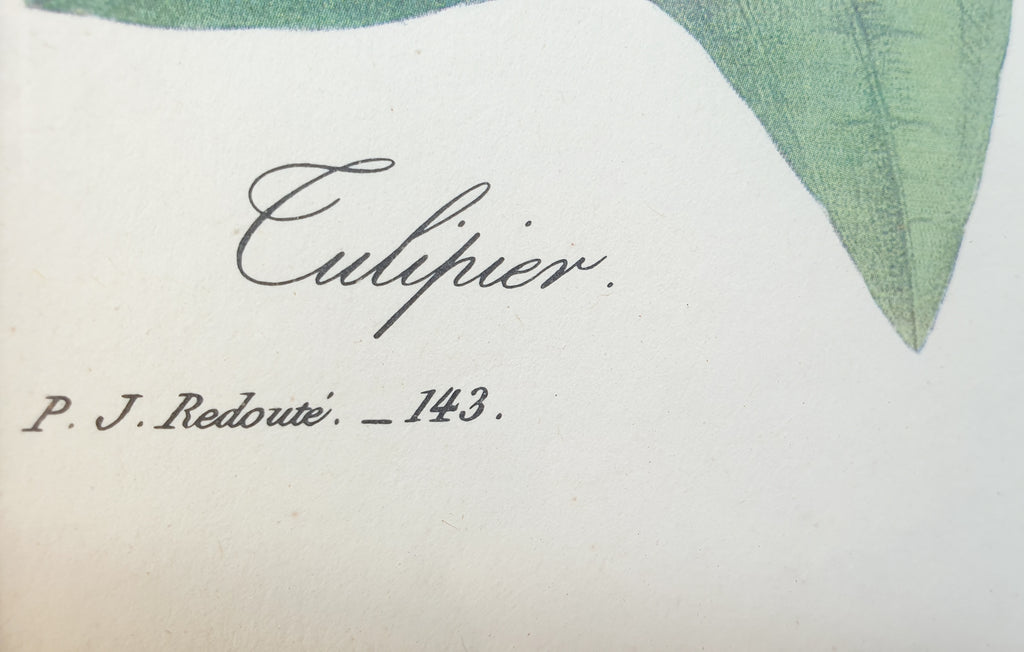 Tulipier.
P. J. Redouté. _ 143.